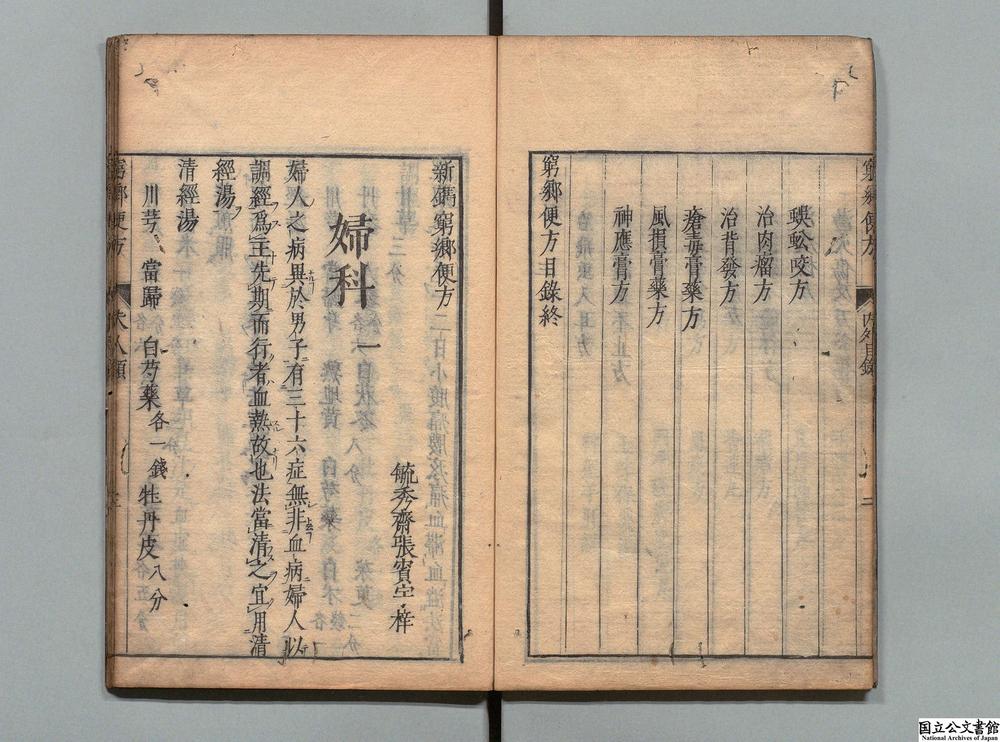 蜈蚣咬方
治肉瘤方
治背發方
瘡毒膏藥方
風損膏藥方
神應膏方
窮鄉便方目錄終
新鐫窮鄉便方
毓秀齋張賓宇 梓
婦科一
婦人之病異於男子有三十六症無非血病婦人以
調經爲主先期而行者血熱故也法當清之宜用清
經湯
清經湯
川芎 當歸 白芍藥各一錢 牡丹皮八分
国立公文書館
National Archives of Japan